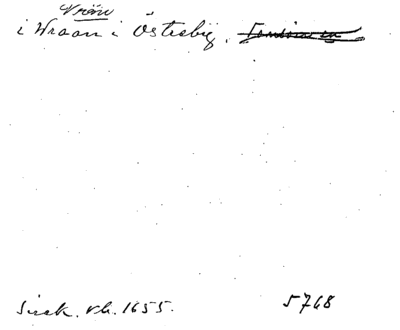 Vrån
i Wraan i Östreby.
Sirek. Vb. 1655. 5768